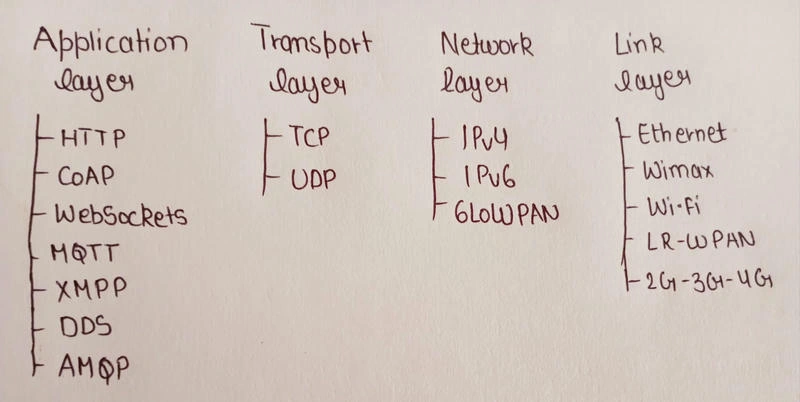 Application
layer
HTTP
CoAP
WebSockets
MQTT
XMPP
DDS
AMQP
Transport
layer
TCP
UDP
Network
layer
IPv4
IPv6
6LoWPAN
Link
layer
Ethernet
Wimax
Wi-Fi
LR-WPAN
2G-3G-4G